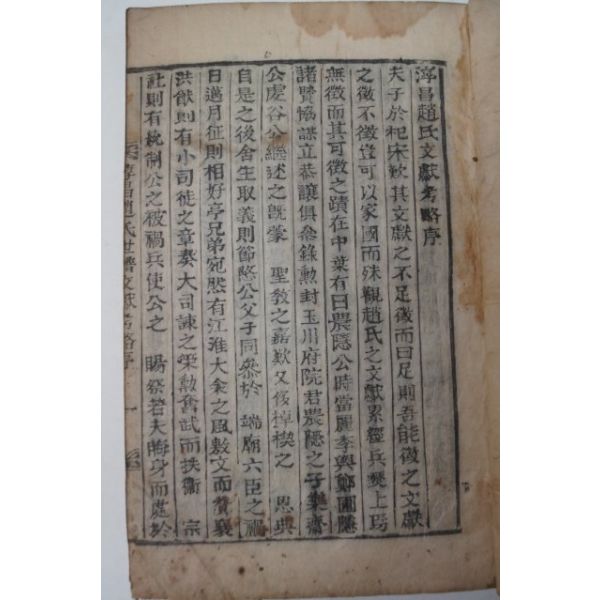 淳昌趙氏文獻考略序
夫子於杞宋歎其文獻之不足徵而曰足則吾能徵之文獻
之徵不徵豈可以家國而殊觀趙氏之文獻累經兵燹上焉
無徵而其可徵之蹟在中葉有曰農隱公時當麗季與鄭圃隱
諸賢協謀立恭讓俱叅錄勳封玉川府院君農隱之子樂齋
公虔谷公繼述之旣蒙 聖敎之嘉歎又侈掉楔之 恩典
自是之後舍生取義則節愍公父子同叅於 端廟六臣之禍
日邁月征則相好亭兄弟宛然有江淮大全之風敷文而贊襄
洪猷則有小司徒之章奏大司諫之榮勳奮武而扶衞 宗
社則有統制公之被禍兵使公之 賜祭若夫晦身而處於
淳昌趙氏世譜文獻考略序 一